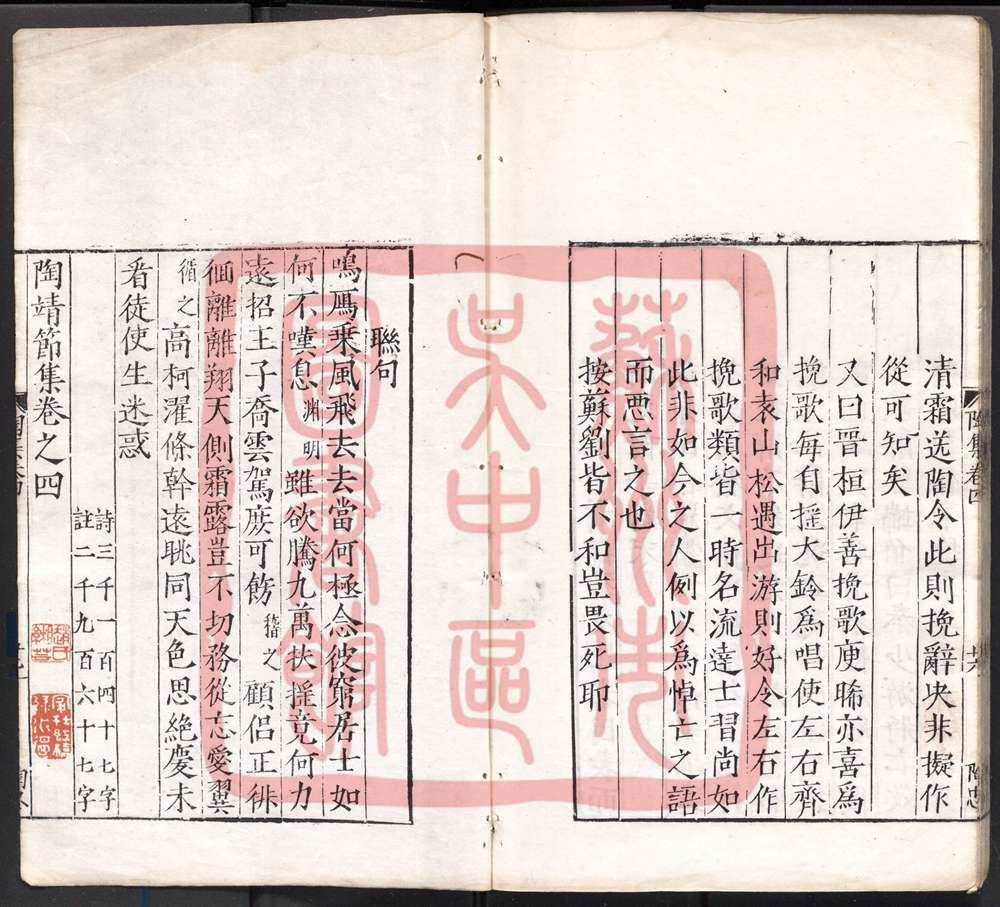 清霜送陶令此則挽辭决非擬作
從可知矣
又曰晉桓伊善挽歌庾晞亦喜爲
挽歌每自揺大鈴爲唱使左右齊
和袁山松遇出游則好令左右作
挽歌類皆一時名流達士習尚如
此非如今之人例以爲悼亡之語
而惡言之也
按蘇劉皆不和豈畏死耶
陶集卷四
廿六
陶忠
聯句
鳴鴈乗風飛去去當何極念彼窮居士如
何不嘆息淵明雖欲騰九萬扶揺竟何力
遠招王子喬雲駕庶可飭 之顧侣正徘
徊離離翔天側霜露豈不切務從忘愛翼
循之高柯濯條幹遠眺同天色思絶慶未
看徒使生迷惑
詩三千一百四十七字
註二千九百六十七字
陶靖節集卷之四
藝州先
吴中區
國書館